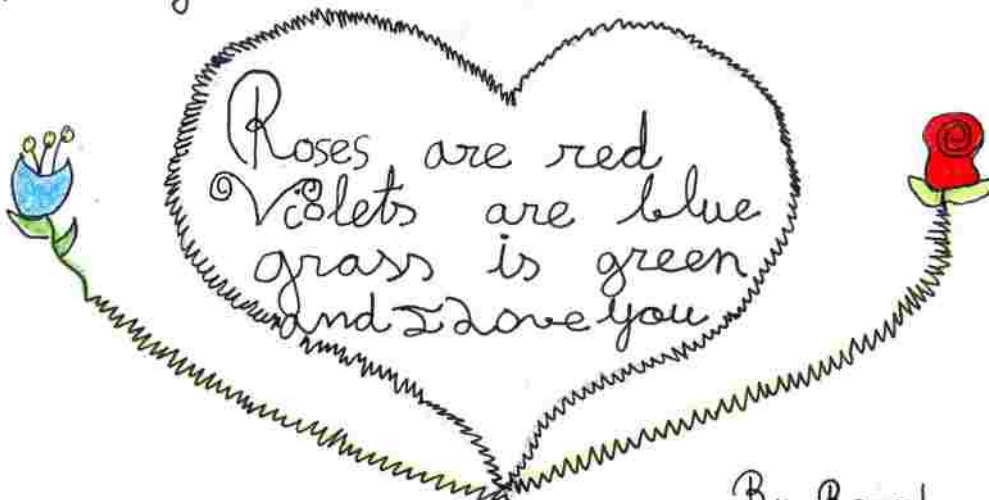 Roses are red
Violets are blue
grass is green
and I Love you
By